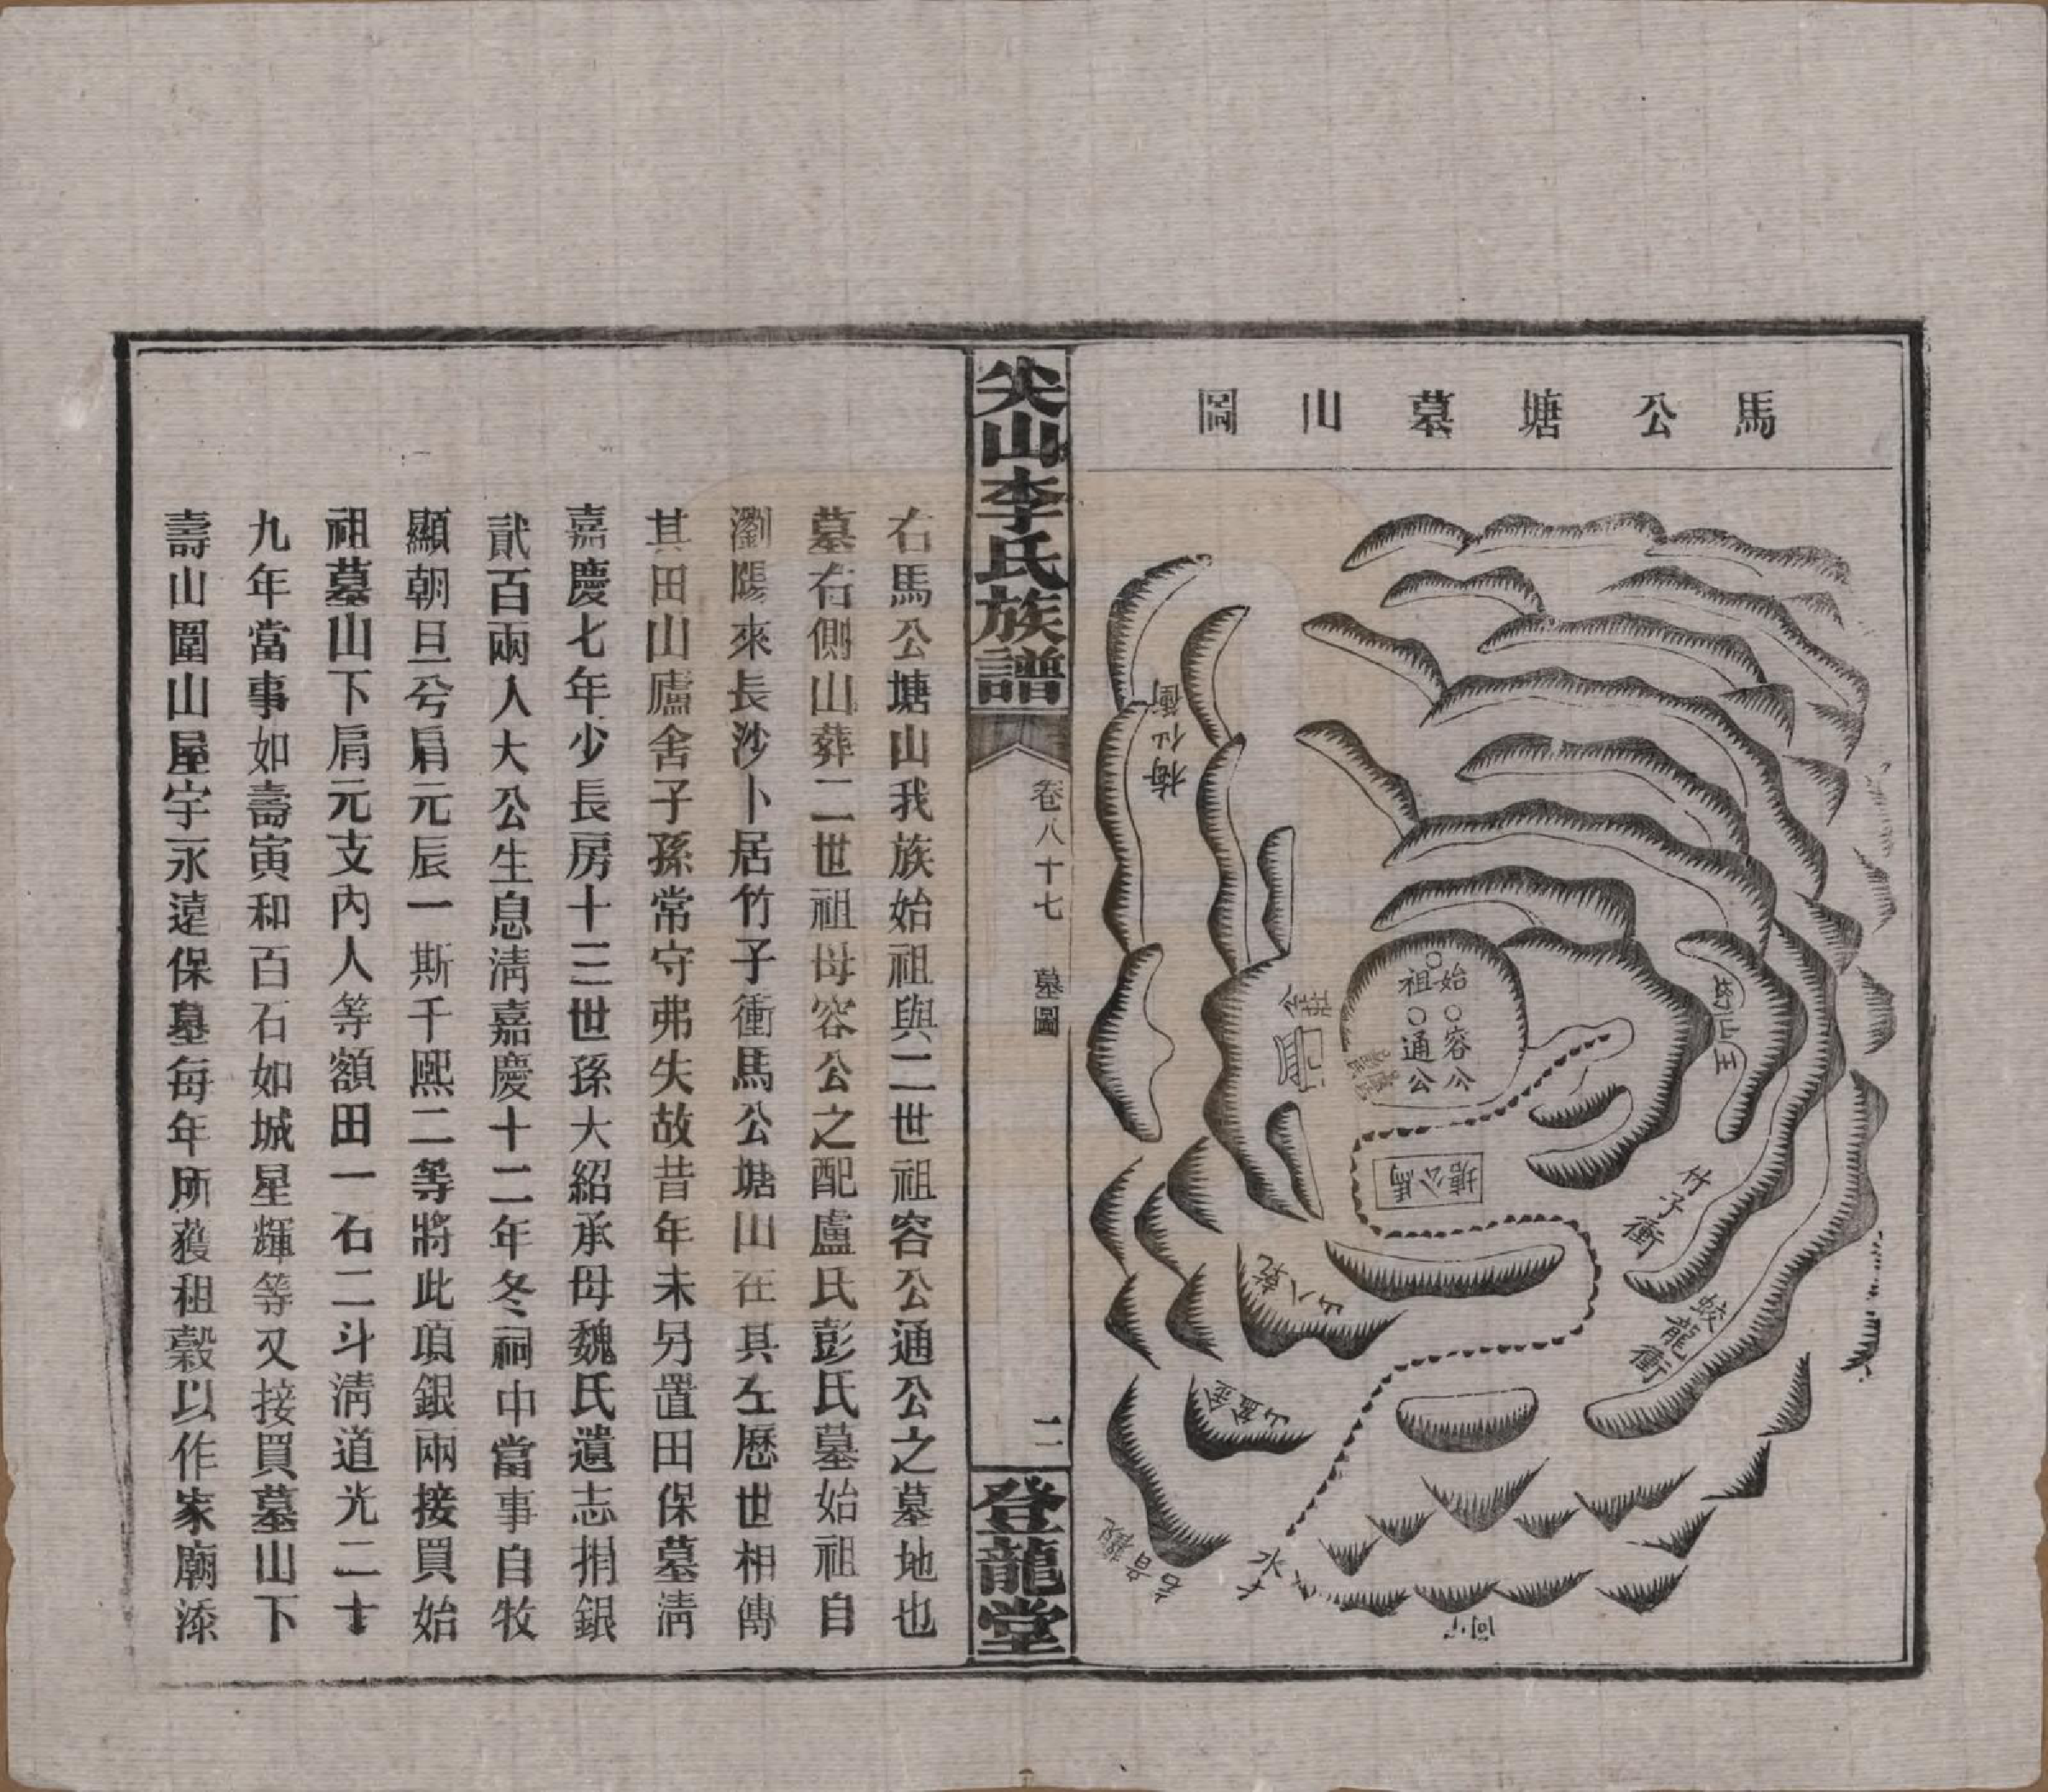 馬公塘墓山圖
始祖
容公
通公
馬公塘
梅仙衝
竹子衝
蛟龍衝
水口
尖山李氏族譜
卷八十七
墓圖
二
登龍堂
右馬公塘山我族始祖與二世祖容公通公之墓地也
墓右側山葬二世祖母容公之配盧氏彭氏墓始祖自
瀏陽來長沙卜居竹子衝馬公塘山在其左歷世相傳
其田山廬舍子孫常守弗失故昔年未另置田保墓清
嘉慶七年少長房十三世孫大紹承母魏氏遺志捐銀
貳百兩入大公生息清嘉慶十二年冬祠中當事自牧
顯朝旦兮肩元辰一斯千熙二等將此項銀兩接買始
祖墓山下肩元支內人等額田一石二斗清道光二十
九年當事如壽寅和百石如城星輝等又接買墓山下
壽山圍山屋宇永遠保墓每年所獲租穀以作家廟添